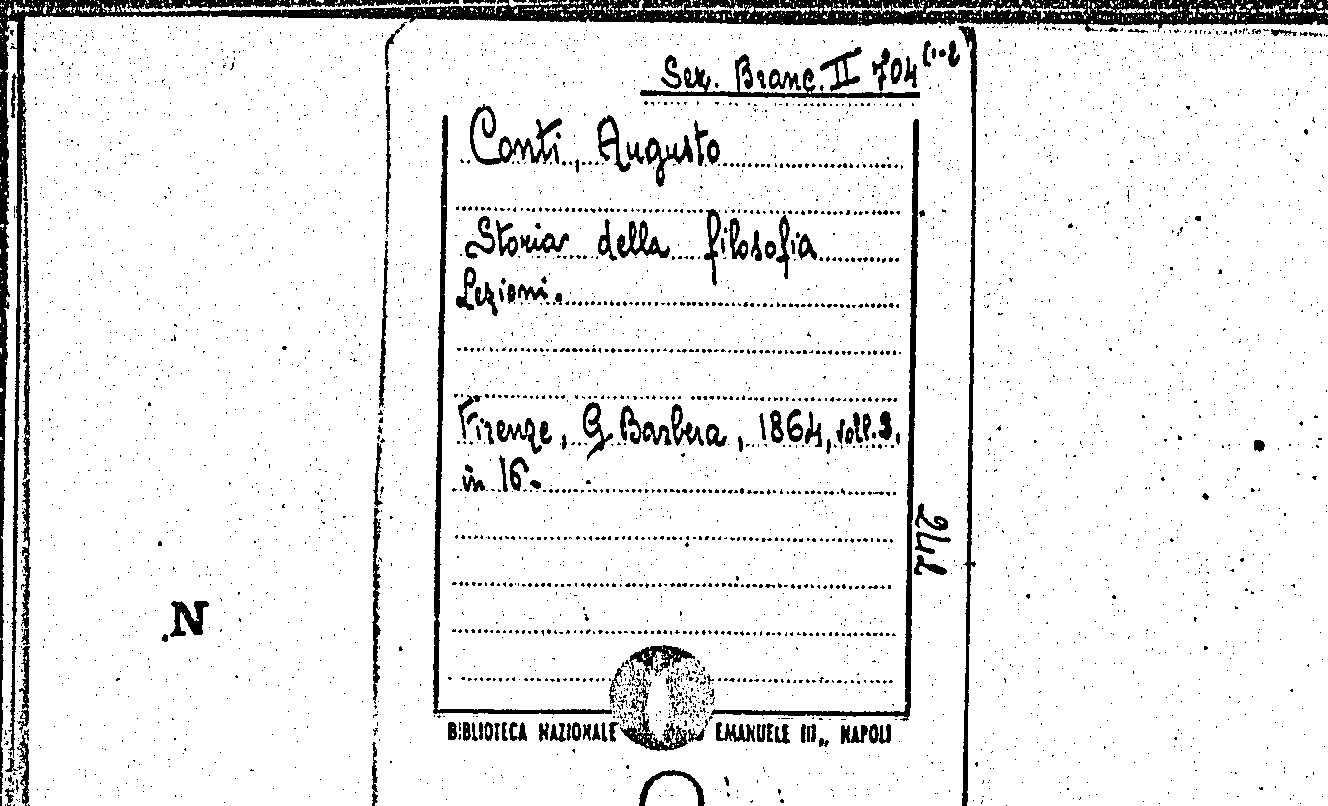 Sez. Branc. II 704 (1-2
Conti, Augusto
Storia della filosofia
Lezioni.
Firenze, G. Barbera, 1864, voll. 2.
in 16°.
N
BIBLIOTECA NAZIONALE EMANUELE III„ NAPOLI